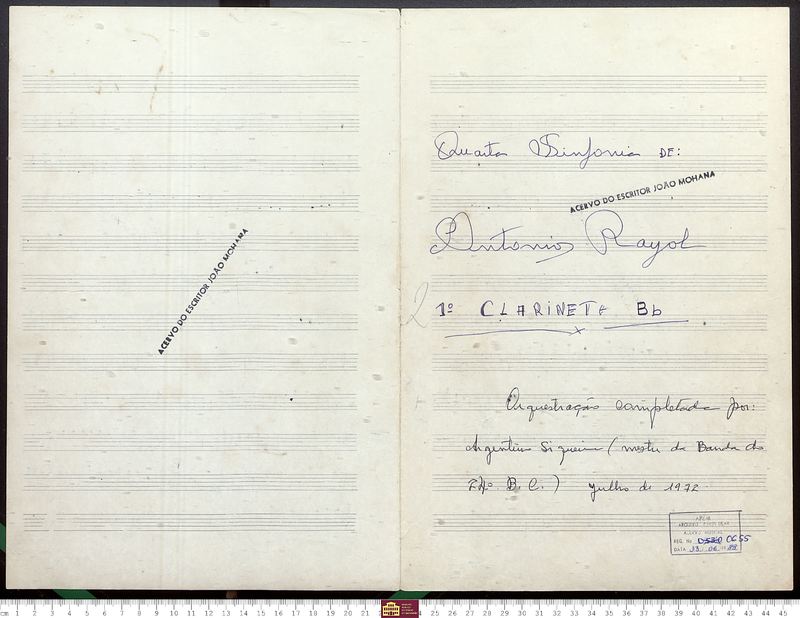 ACERVO DO ESCRITOR JOÃO MOHANA
Quarta Sinfonia DE:
ACERVO DO ESCRITOR JOÃO MOHANA
Antonio Rayol
2
1º CLARINETA Bb
Orquestração completada por:
Argentino Siqueira (mestre da Banda do
24º. B. C.) Julho de 1972.
ACERVO MUSICAL
REG. No 0655
DATA 13 06
cm 1 2 3 4 5 6 7 8 9 10 11 12 13 14 15 16 17 18 19 20 21 24 25 26 27 28 29 30 31 32 33 34 35 36 37 38 39 40 41 42 43 44 45